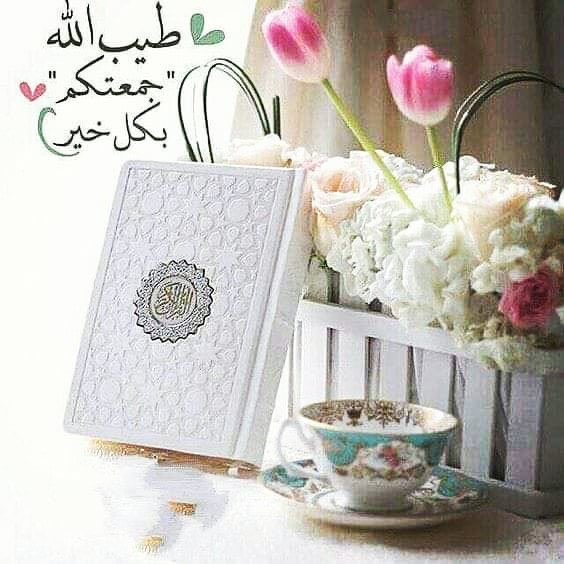 طيب الله
"جمعتكم"
بكل خير
القرآن الكريم